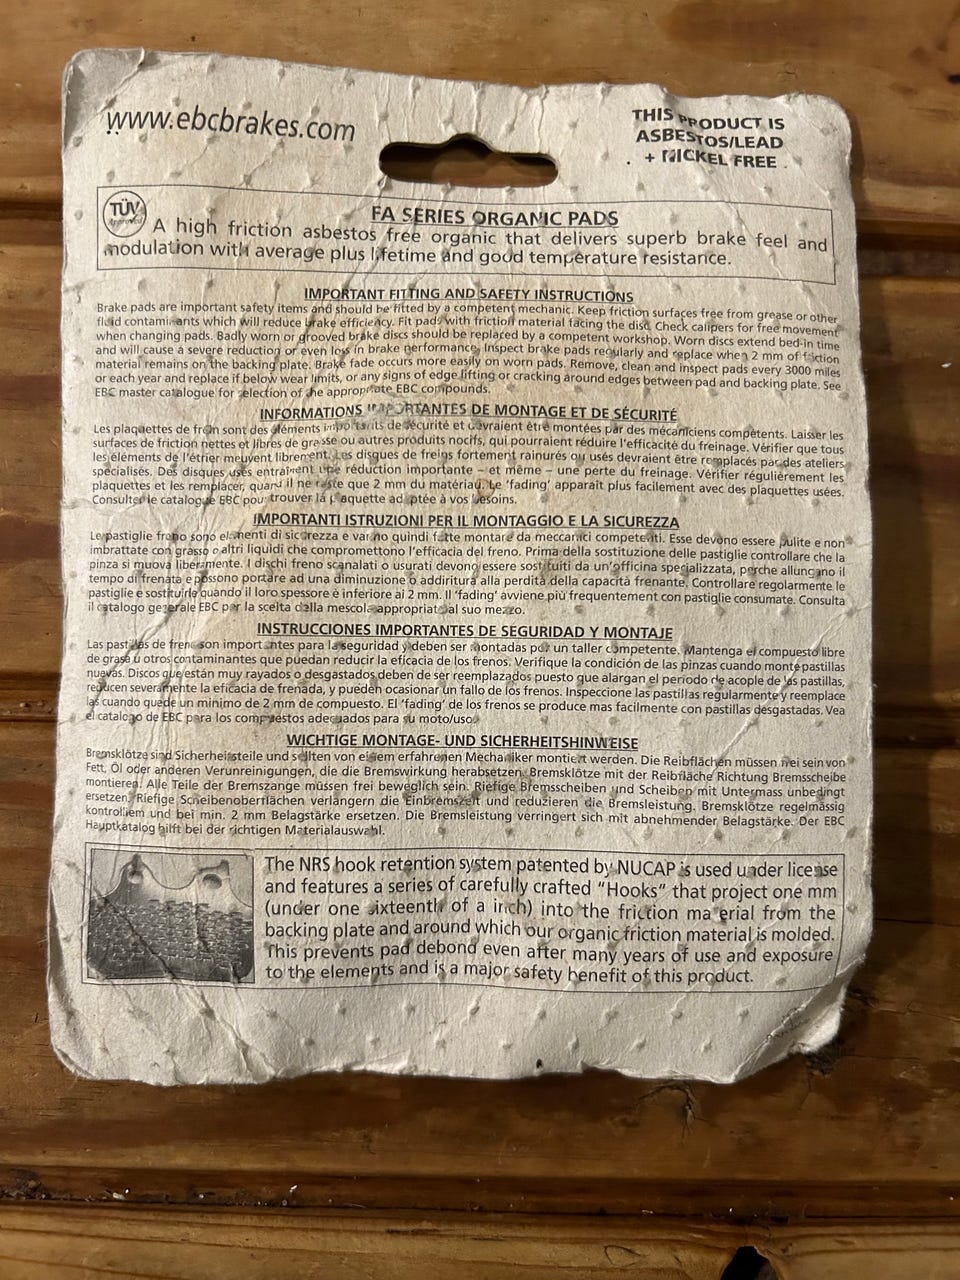 www.ebcbrakes.com
THIS PRODUCT IS
ASBESTOS/LEAD
+ NICKEL FREE
TÜV
Approved
FA SERIES ORGANIC PADS
A high friction asbestos free organic that delivers superb brake feel and
modulation with average plus lifetime and good temperature resistance.
IMPORTANT FITTING AND SAFETY INSTRUCTIONS
Brake pads are important safety items and should be fitted by a competent mechanic. Keep friction surfaces free from grease or other
fluid contaminants which will reduce brake efficiency. Fit pads with friction material facing the disc. Check calipers for free movement
when changing pads. Badly worn or grooved brake discs should be replaced by a competent workshop. Worn discs extend bed-in time
and will cause a severe reduction or even loss in brake performance. Inspect brake pads regularly and replace when 2 mm of friction
material remains on the backing plate. Brake fade occurs more easily on worn pads. Remove, clean and inspect pads every 3000 miles
or each year and replace if below wear limits, or any signs of edge lifting or cracking around edges between pad and backing plate. See
EBC master catalogue for selection of the appropriate EBC compounds.
INFORMATIONS IMPORTANTES DE MONTAGE ET DE SÉCURITÉ
Les plaquettes de frein sont des éléments importants de sécurité et devraient être montées par des mécaniciens compétents. Laisser les
surfaces de friction nettes et libres de graisse ou autres produits nocifs, qui pourraient réduire l'efficacité du freinage. Vérifier que tous
les éléments de l'étrier meuvent librement. Les disques de freins fortement rainurés ou usés devraient être remplacés par des ateliers
spécialisés. Des disques usés entraînent une réduction importante – et même – une perte du freinage. Vérifier régulièrement les
plaquettes et les remplacer, quand il ne reste que 2 mm du matériau. Le 'fading' apparaît plus facilement avec des plaquettes usées.
Consulter le catalogue EBC pour trouver la plaquette adaptée à vos besoins.
IMPORTANTI ISTRUZIONI PER IL MONTAGGIO E LA SICUREZZA
Le pastiglie freno sono elementi di sicurezza e vanno quindi fatte montare da meccanici competenti. Esse devono essere pulite e non
imbrattate con grasso o altri liquidi che compromettono l'efficacia del freno. Prima della sostituzione delle pastiglie controllare che la
pinza si muova liberamente. I dischi freno scanalati o usurati devono essere sostituiti da un'officina specializzata, perche allungano il
tempo di frenata e possono portare ad una diminuzione o addiritura alla perdita della capacità frenante. Controllare regolarmente le
pastiglie e sostituirle quando il loro spessore è inferiore ai 2 mm. Il 'fading' avviene più frequentemente con pastiglie consumate. Consulta
il catalogo generale EBC per la scelta della mescola appropriata al suo mezzo.
INSTRUCCIONES IMPORTANTES DE SEGURIDAD Y MONTAJE
Las pastillas de freno son importantes para la seguridad y deben ser montadas por un taller competente. Mantenga el compuesto libre
de grasa u otros contaminantes que puedan reducir la eficacia de los frenos. Verifique la condición de las pinzas cuando monte pastillas
nuevas. Discos que están muy rayados o desgastados deben de ser reemplazados puesto que alargan el periodo de acople de las pastillas,
reducen severamente la eficacia de frenada, y pueden ocasionar un fallo de los frenos. Inspeccione las pastillas regularmente y reemplace
las cuando quede un minimo de 2 mm de compuesto. El 'fading' de los frenos se produce mas facilmente con pastillas desgastadas. Vea
el catalogo de EBC para los compuestos adecuados para su moto/uso.
WICHTIGE MONTAGE- UND SICHERHEITSHINWEISE
Bremsklötze sind Sicherheitsteile und sollten von einem erfahrenen Mechaniker montiert werden. Die Reibflächen müssen frei sein von
Fett, Öl oder anderen Verunreinigungen, die die Bremswirkung herabsetzen. Bremsklötze mit der Reibfläche Richtung Bremsscheibe
montieren. Alle Teile der Bremszange müssen frei beweglich sein. Riefige Bremsscheiben und Scheiben mit Untermass unbedingt
ersetzen. Riefige Scheibenoberflächen verlängern die Einbremszeit und reduzieren die Bremsleistung. Bremsklötze regelmässig
kontrolliern und bei min. 2 mm Belagstärke ersetzen. Die Bremsleistung verringert sich mit abnehmender Belagstärke. Der EBC
Hauptkatalog hilft bei der richtigen Materialauswahl.
The NRS hook retention system patented by NUCAP is used under license
and features a series of carefully crafted "Hooks" that project one mm
(under one sixteenth of a inch) into the friction material from the
backing plate and around which our organic friction material is molded.
This prevents pad debond even after many years of use and exposure
to the elements and is a major safety benefit of this product.